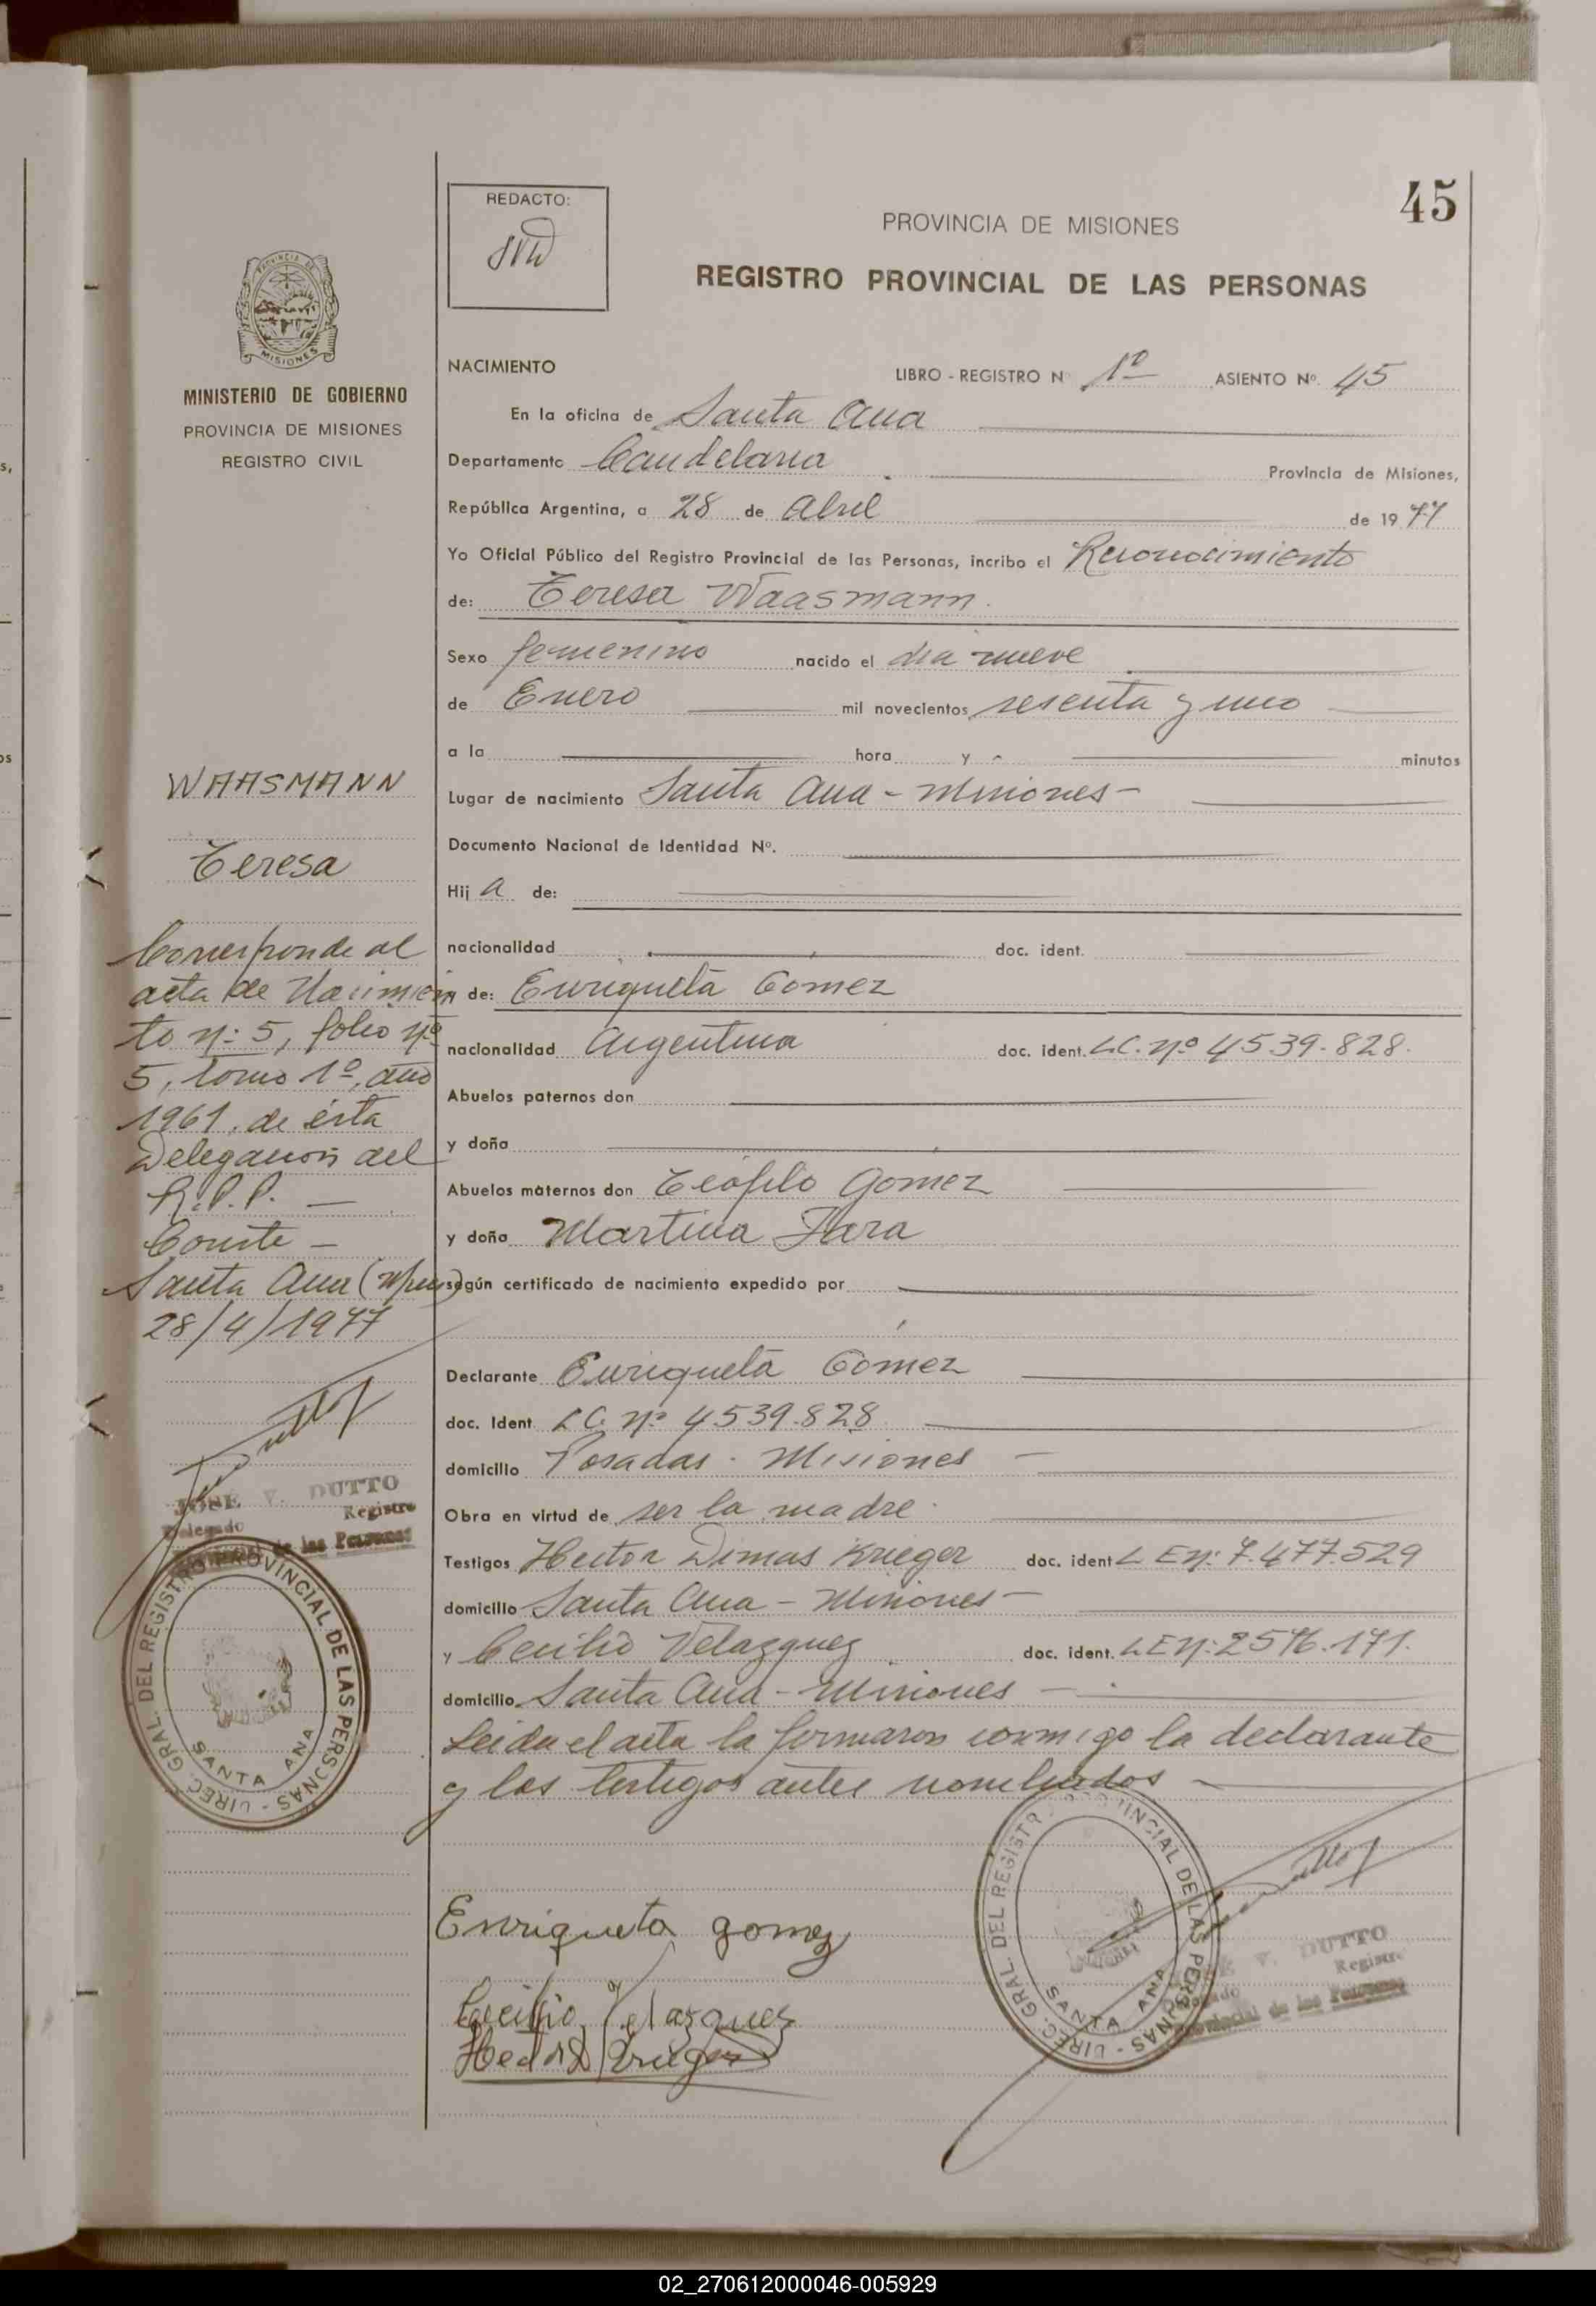 45
REDACTO:
PROVINCIA DE MISIONES
REGISTRO PROVINCIAL DE LAS PERSONAS
PROVINCIA DE
MISIONES
MINISTERIO DE GOBIERNO
PROVINCIA DE MISIONES
REGISTRO CIVIL
NACIMIENTO
LIBRO - REGISTRO Nº 1º ASIENTO Nº. 45
En la oficina de Santa Ana
Departamento Candelaria Provincia de Misiones,
República Argentina, a 28 de Abril de 1977
Yo Oficial Público del Registro Provincial de las Personas, incribo el Reconocimiento
de: Teresa Waasmann.
Sexo femenino nacido el día nueve
de Enero mil novecientos sesenta y uno
a la hora y minutos
Lugar de nacimiento Santa Ana - Misiones -
Documento Nacional de Identidad Nº.
Hij a de:
nacionalidad doc. ident.
de: Enriqueta Gomez
nacionalidad Argentina doc. ident. L.C. nº 4539.828.
Abuelos paternos don
y doña
Abuelos maternos don Teófilo Gomez
y doña Martina Jara
según certificado de nacimiento expedido por
Declarante Enriqueta Gomez
doc. Ident. LC. nº 4539.828
domicilio Posadas - Misiones -
Obra en virtud de ser la madre.
Testigos Hector Dimas Krieger doc. ident L E nº 7.477.529
domicilio Santa Ana - Misiones -
y Cecilio Velazquez doc. ident. L E nº
domicilio Santa Ana - Misiones -
Leida el acta la firmaron conmigo la declarante
y los testigos antes nombrados -
Enriqueta gomez
Cecilio Velazquez
WAASMANN
Teresa
Corresponde al
acta de Nacimien
to nº 5, folio nº
5, tomo 1º, año
1961, de ésta
Delegacion del
R.P.P. -
Conste -
Santa Ana (Mnes)
28/4/1977
JOSE V. DUTTO
Delegado Registro
Provincial de las Personas
DIREC. GRAL. DEL REGISTRO PROVINCIAL DE LAS PERSONAS -
SANTA ANA
DIREC. GRAL. DEL REGISTRO PROVINCIAL DE LAS PERSONAS -
SANTA ANA
JOSE V. DUTTO
Delegado Registro
Provincial de las Personas
02_270612000046-005929